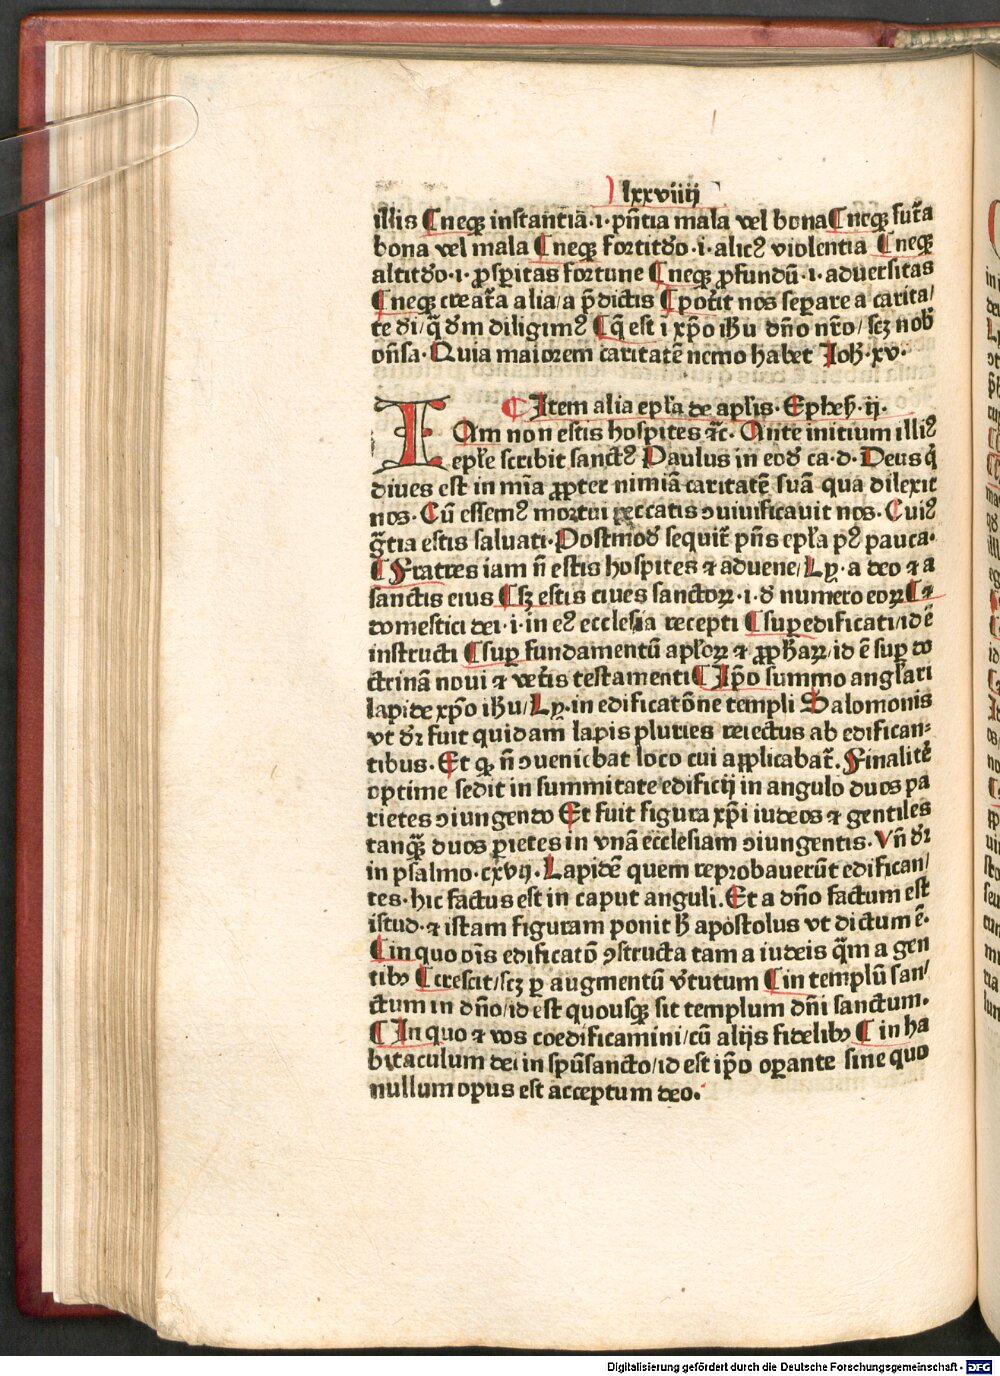 lxxviiij
illis ⸿neqꝫ instantiā·i·p̄ñtia mala vel bona⸿neqꝫ fut̄a
bona vel mala ⸿neqꝫ fortitꝺo·i·alicꝰ violentia ⸿neqꝫ
altitꝺo·i·ꝓspitas fortune ⸿neqꝫ ꝓfundū·i·aduersitas
⸿neqꝫ creat̄a alia/a p̄dictis ⸿poťit nos seꝑare a carita/
te ꝺi/q̄ ꝺm diligimꝰ ⸿q̄ est i xp̄o ih̄u dn̄o nr̄o/scꝫ nob̄
on̄sa·Quia maiorem caritatē nemo habet Joh̄·xv·
⸿Item alia ep̄ła de ap̄lis·Epheh̄·ij·
IAm non estis hospites ⁊c·Ante initium illiꝰ
ep̄łe scribit sanctꝰ Paulus in eoꝺ ca·d·Deus q̄
diues est in mīa ꝓpter nimiā caritatē suā qua dilexit
nos·Cū essemꝰ mortui peccatis ɔuiuificauit nos·Cuiꝰ
gr̄tia estis saluati·Postmoꝺ sequit̄ pn̄s ep̄ła pꝰ pauca·
⸿Fratres iam n̄ estis hospites ⁊ aduene/Ly·a deo ⁊ a
sanctis eius ⸿sꝫ estis ciues sanctoꝝ·i·ꝺ numero eoꝝ⸿⁊
domestici dei·i·in eꝰ ecclesia recepti ⸿suꝑedificati/id ē
instructi ⸿suꝑ fundamentū apłoꝝ ⁊ ꝓph̄aꝝ/id ē suꝑ do
ctrinā noui ⁊ veťis testamenti⸿Ip̄o summo angl̄ari
lapide xp̄o ih̄u/Ly·in edificatōne templi Salomonis
vt ꝺr̄ fuit quidam lapis pluries reiectus ab edifican⸗
tibus·Et qꝫ n̄ ɔueniebat loco cui applicabat̄·Finalit̄
optime sedit in summitate edificij in angulo duos pa
rietes ɔiungendo Et fuit figura xp̄i iudeos ⁊ gentiles
tanqꝫ duos ꝑietes in vnā ecclesiam ɔiungentis·Vn̄ ꝺr̄
in psalmo·cxvij·Lapidē quem reprobauerūt edifican/
tes·hic factus est in caput anguli·Et a dn̄o factum est
istud·⁊ istam figuram ponit h̄ apostolus vt dictum ē·
⸿in quo oīs edificatō ꝯstructa tam a iudeis q̄m a gen
tibꝰ ⸿crescit/scꝫ ꝑ augmentū v̓tutum ⸿in templū san/
ctum in dn̄o/id est quousqꝫ sit templum dn̄i sanctum·
⸿In quo ⁊ vos coedificamini/cū alijs fidelibꝰ ⸿in ha
bitaculum dei in spūsancto/id est ip̄o oꝑante sine quo
nullum opus est acceptum deo·
Digitalisierung gefördert durch die Deutsche Forschungsgemeinschaft - DFG